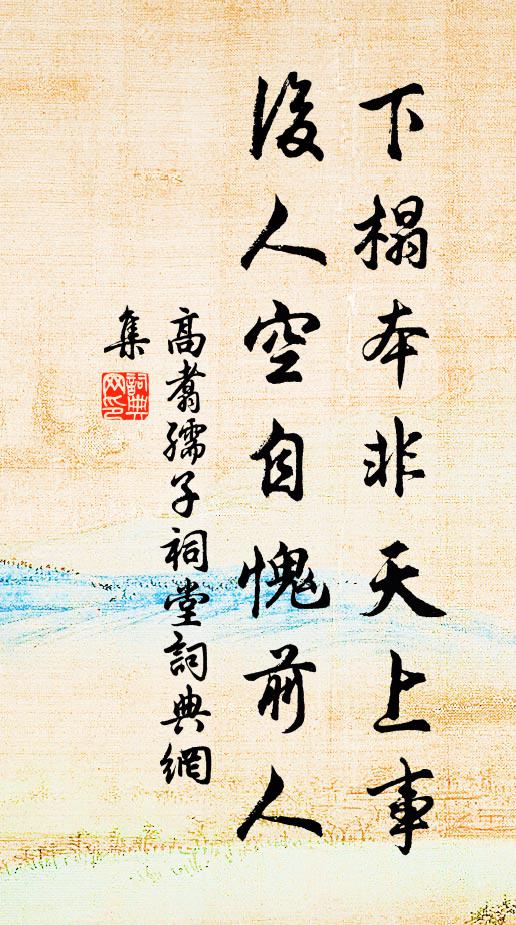 下榻本非天上事
後人空自愧前人
高翥孺子祠堂詞典網
集
詞典
网印